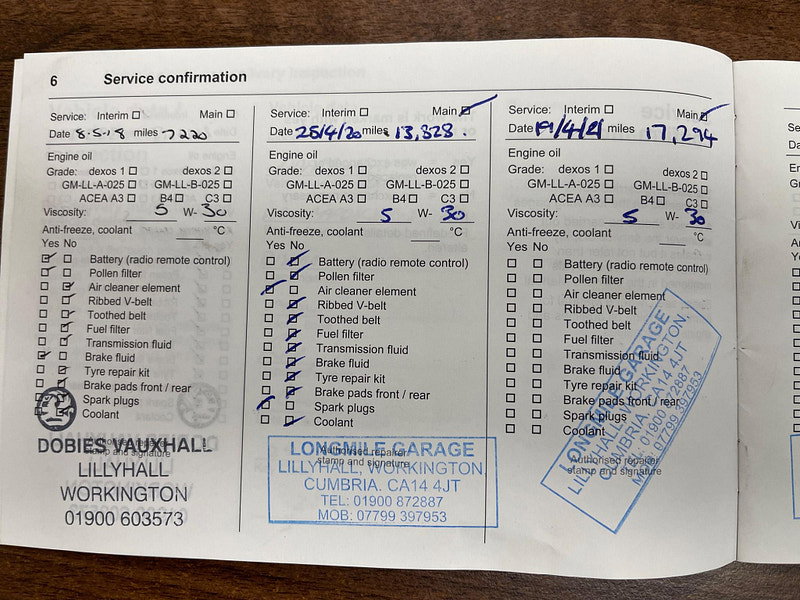 6 Service confirmation
Service: Interim Main
Date 8.5.18 miles 7220
Engine oil
Grade: dexos 1 dexos 2
GM-LL-A-025 GM-LL-B-025
ACEA A3 B4 C3
Viscosity: 5 W- 30
Anti-freeze, coolant °C
Yes No
Battery (radio remote control)
Pollen filter
Air cleaner element
Ribbed V-belt
Toothed belt
Fuel filter
Transmission fluid
Brake fluid
Tyre repair kit
Brake pads front / rear
Spark plugs
Coolant
Authorised repairer
stamp and signature
DOBIES VAUXHALL
LILLYHALL
WORKINGTON
01900 603573
Service: Interim Main
Date 25/4/20 miles 13,828.
Engine oil
Grade: dexos 1 dexos 2
GM-LL-A-025 GM-LL-B-025
ACEA A3 B4 C3
Viscosity: 5 W- 30
Anti-freeze, coolant °C
Yes No
Battery (radio remote control)
Pollen filter
Air cleaner element
Ribbed V-belt
Toothed belt
Fuel filter
Transmission fluid
Brake fluid
Tyre repair kit
Brake pads front / rear
Spark plugs
Coolant
Authorised repairer
stamp and signature
LONGMILE GARAGE
LILLYHALL, WORKINGTON,
CUMBRIA. CA14 4JT
TEL: 01900 872887
MOB: 07799 397953
Service: Interim Main
Date 19/4/21 miles 17,294
Engine oil
Grade: dexos 1 dexos 2
GM-LL-A-025 GM-LL-B-025
ACEA A3 B4 C3
Viscosity: 5 W- 30
Anti-freeze, coolant °C
Yes No
Battery (radio remote control)
Pollen filter
Air cleaner element
Ribbed V-belt
Toothed belt
Fuel filter
Transmission fluid
Brake fluid
Tyre repair kit
Brake pads front / rear
Spark plugs
Coolant
Authorised repairer
stamp and signature
LONGMILE GARAGE
LILLYHALL, WORKINGTON,
CUMBRIA. CA14 4JT
TEL: 01900 872887
MOB: 07799 397953